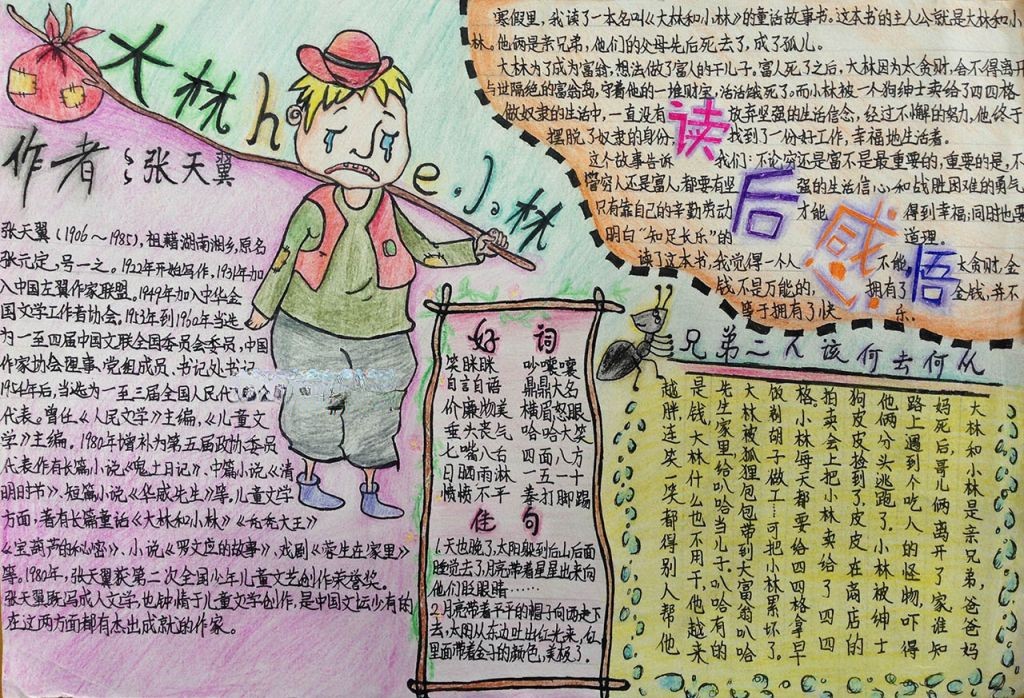 大林he小林
作者：张天翼
张天翼(1906～1985),祖籍湖南湘乡,原名
张元定,号一之。1922年开始写作,1931年加
入中国左翼作家联盟。1949年加入中华全
国文学工作者协会。1953年到1960年当选
为一至四届中国文联全国委员会委员,中国
作家协会理事、党组成员、书记处书记
1954年后,当选为一至三届全国人民代
代表。曾任《人民文学》主编,《儿童文
学》主编。1980年增补为第五届政协委员
代表作有长篇小说《鬼土日记》、中篇小说《清
明时书》、短篇小说《华威先生》等。儿童文学
方面,著有长篇童话《大林和小林》《秃秃大王》
《宝葫芦的秘密》、小说《罗文应的故事》、戏剧《蓉生在家里》
等。1980年,张天翼获第二次全国少年儿童文艺创作荣誉奖。
张天翼既写成人文学,也钟情于儿童文学创作,是中国文坛少有的
在这两方面都有杰出成就的作家。
读后感悟
寒假里,我读了一本名叫《大林和小林》的童话故事书。这本书的主人公就是大林和小
林。他俩是亲兄弟,他们的父母先后死去了,成了孤儿。
大林为了成为富翁,想法做了富人的干儿子。富人死了之后,大林因为太贪财,舍不得离开
与世隔绝的富翁岛,守着他的一堆财宝,活活饿死了。而小林被一个狗绅士卖给了四四格
做奴隶的生活中,一直没有放弃坚强的生活信念,经过不懈的努力,他终于
摆脱了奴隶的身份,找到了一份好工作,幸福地生活着。
这个故事告诉我们:不论穷还是富不是最重要的,重要的是,不
管穷人还是富人都要有坚强的生活信心和战胜困难的勇气
只有靠自己的辛勤劳动才能得到幸福;同时也要
明白“知足长乐”的道理。
读了这本书,我觉得一个人不能太贪财,金
钱不是万能的,拥有了金钱,并不
等于拥有了快乐。
好词
笑眯眯 吵嚷嚷
自言自语 鼎鼎大名
价廉物美 横眉怒眼
垂头丧气 哈哈大笑
七嘴八舌 四面八方
日晒雨淋 一五一十
愤愤不平 拳打脚踢
佳句
1.天也晚了,太阳躲到后山后面
睡觉去了,月亮带着星星出来向
他们眨眼睛……
2.月亮带着平平的帽子向西走下
去,太阳从东边吐出红光来,红
里面带着金子的颜色,美极了。
兄弟二人该何去何从
大林和小林是亲兄弟,爸爸妈
妈死后,哥儿俩离开了家,谁知
路上遇到个吃人的怪物,吓得
他俩分头逃跑了。小林被绅士
狗皮皮捡到了,皮皮在商店的
拍卖会上把小林卖给了四四
格。小林每天都要给四四格拿早
饭剃胡子做工…可把小林累坏了。
大林被狐狸包包带到大富翁叭哈
先生家里给叭哈当儿子。叭哈有的
是钱,大林什么也不用干,他越来
越胖,连笑一笑都得别人帮他